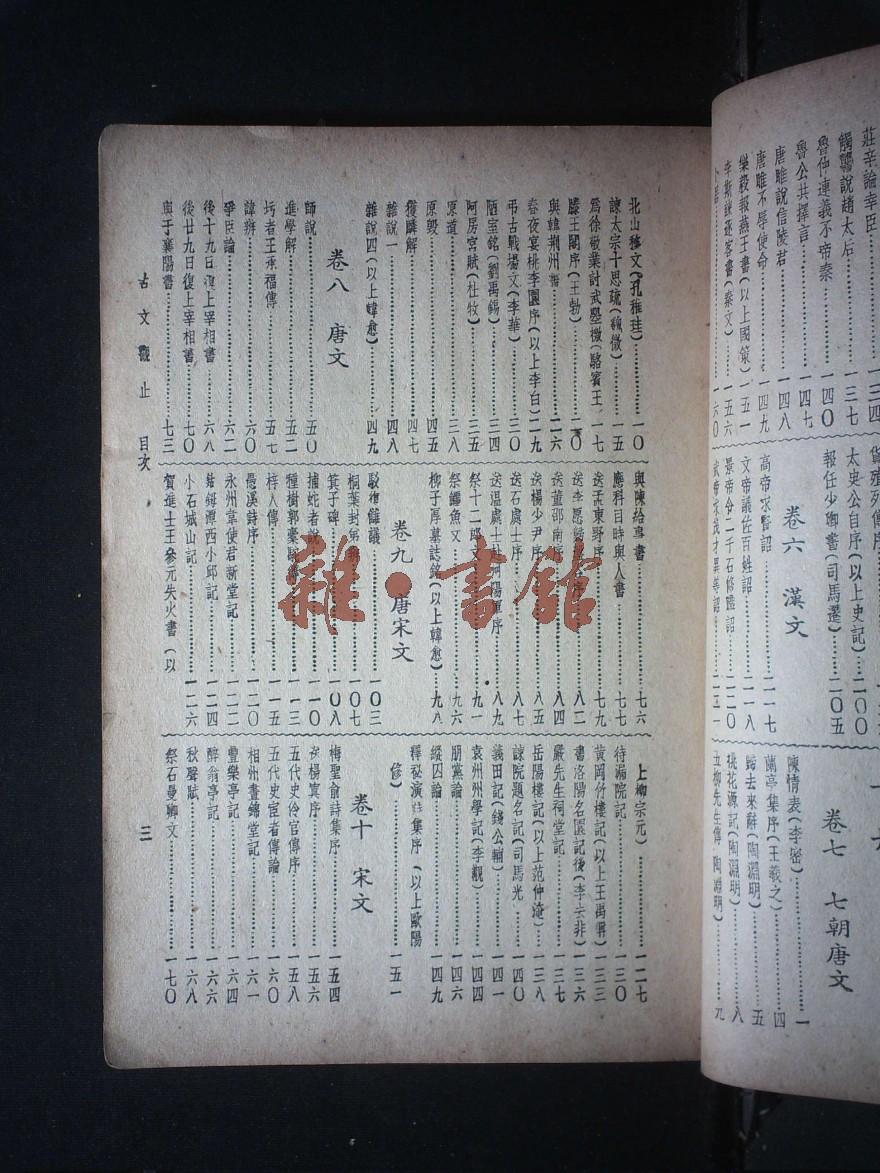 莊辛論幸臣……一三四
觸讋說趙太后……一三七
魯仲連義不帝秦……一四〇
魯公共擇言……一四七
唐雎說信陵君……一四八
唐雎不辱使命……一四九
樂毅報燕王書(以上國策)……一五一
李斯諫逐客書(秦文)……一五六
……一六〇
貨殖列傳序
太史公自序(以上史記)……二〇〇
報任少卿書(司馬遷)……二〇五
卷六 漢文
高帝求賢詔……一一七
文帝議佐百姓詔……一一八
景帝令二千石修職詔……一二〇
武帝求茂才異等詔
卷七 七朝唐文
陳情表(李密)……一
蘭亭集序(王羲之)……四
歸去來辭(陶淵明)……五
桃花源記(陶淵明)……八
五柳先生傳(陶淵明)……九
北山移文(孔稚珪)……一〇
諫太宗十思疏(魏徵)……一五
爲徐敬業討武曌檄(駱賓王……一七
滕王閣序(王勃)……二〇
與韓荆州書……二六
春夜宴桃李園序(以上李白)二九
弔古戰場文(李華)……三〇
陋室銘(劉禹錫)……三四
阿房宮賦(杜牧)……三五
原道……三八
原毀……四五
獲麟解……四七
雜說一……四八
雜說四(以上韓愈)……四九
卷八 唐文
師說……五〇
進學解……五二
圬者王承福傳……五七
諱辨……六〇
爭臣論……六二
後十九日復上宰相書……六八
後廿九日復上宰相書……七〇
與于襄陽書……七三
與陳給事書……七六
應科目時與人書……七七
送孟東野序……七九
送李愿歸盤谷序……八二
送董邵南序……八四
送楊少尹序……八五
送石處士序……八七
送溫處士赴河陽軍序……八九
祭十二郎文……九一
祭鱷魚文……九六
柳子厚墓誌銘(以上韓愈)……九八
卷九 唐宋文
駁復讎議……一〇三
桐葉封弟辨……一〇七
箕子碑……一〇八
捕蛇者說……一一〇
種樹郭橐駝傳……一一三
梓人傳……一一五
愚溪詩序……一二〇
永州韋使君新堂記……一二二
鈷鉧潭西小邱記……一二四
小石城山記……一二六
賀進士王參元失火書(以
上柳宗元)……一二七
待漏院記……一三〇
黃岡竹樓記(以上王禹偁)一三三
書洛陽名園記後(李去非)一三六
嚴先生祠堂記……一三七
岳陽樓記(以上范仲淹)……一三八
諫院題名記(司馬光……一四〇
義田記(錢公輔)……一四一
袁州州學記(李覯)……一四四
朋黨論……一四六
縱囚論……一四九
釋秘演詩集序(以上歐陽
修)……一五一
卷十 宋文
梅聖俞詩集序……一五四
送楊寘序……一五六
五代史伶官傳序……一五八
五代史宦者傳論……一六〇
相州晝錦堂記……一六一
豐樂亭記……一六四
醉翁亭記……一六六
秋聲賦……一六八
祭石曼卿文……一七〇
古文觀止 目次 三
雜·書館